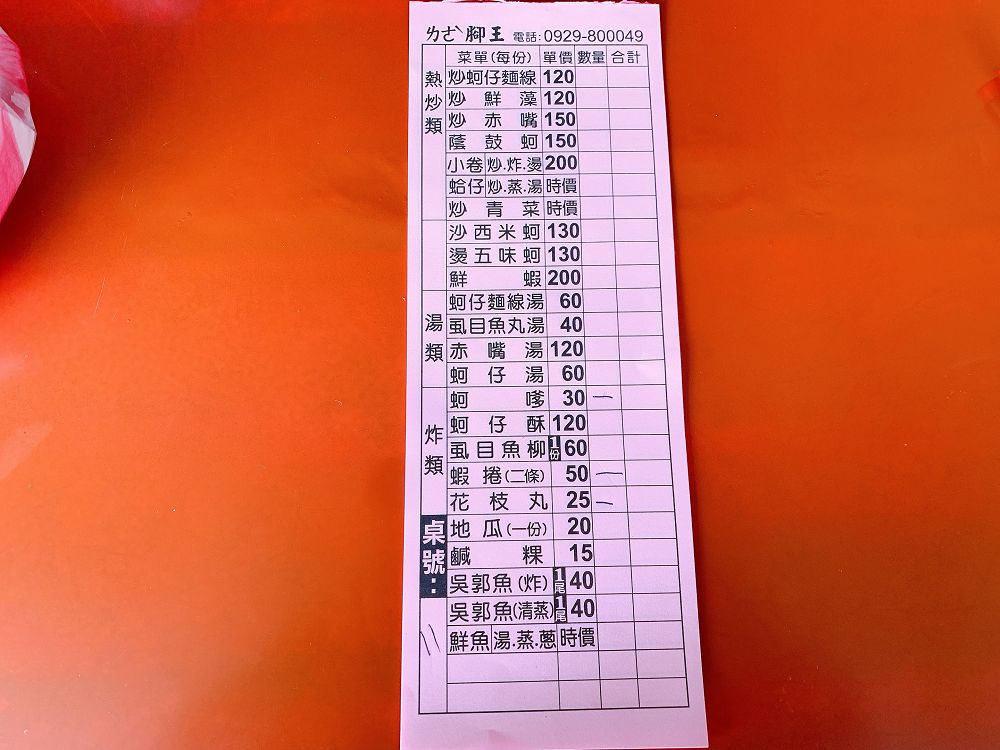 ㄌㄜˋ腳王 電話:0929-800049
菜單(每份) 單價 數量 合計
熱炒類
炒蚵仔麵線 120
炒鮮藻 120
炒赤嘴 150
蔭鼓蚵 150
小卷 炒.炸.燙 200
蛤仔 炒.蒸.湯 時價
炒青菜 時價
沙西米蚵 130
燙五味蚵 130
鮮蝦 200
湯類
蚵仔麵線湯 60
虱目魚丸湯 40
赤嘴湯 120
蚵仔湯 60
炸類
蚵嗲 30 一
蚵仔酥 120
虱目魚柳 1份 60
蝦捲(二條) 50 一
花枝丸 25 一
桌號:
地瓜(一份) 20
鹹粿 15
吳郭魚(炸) 1尾 40
吳郭魚(清蒸) 1尾 40
11
鮮魚 湯.蒸.蔥 時價